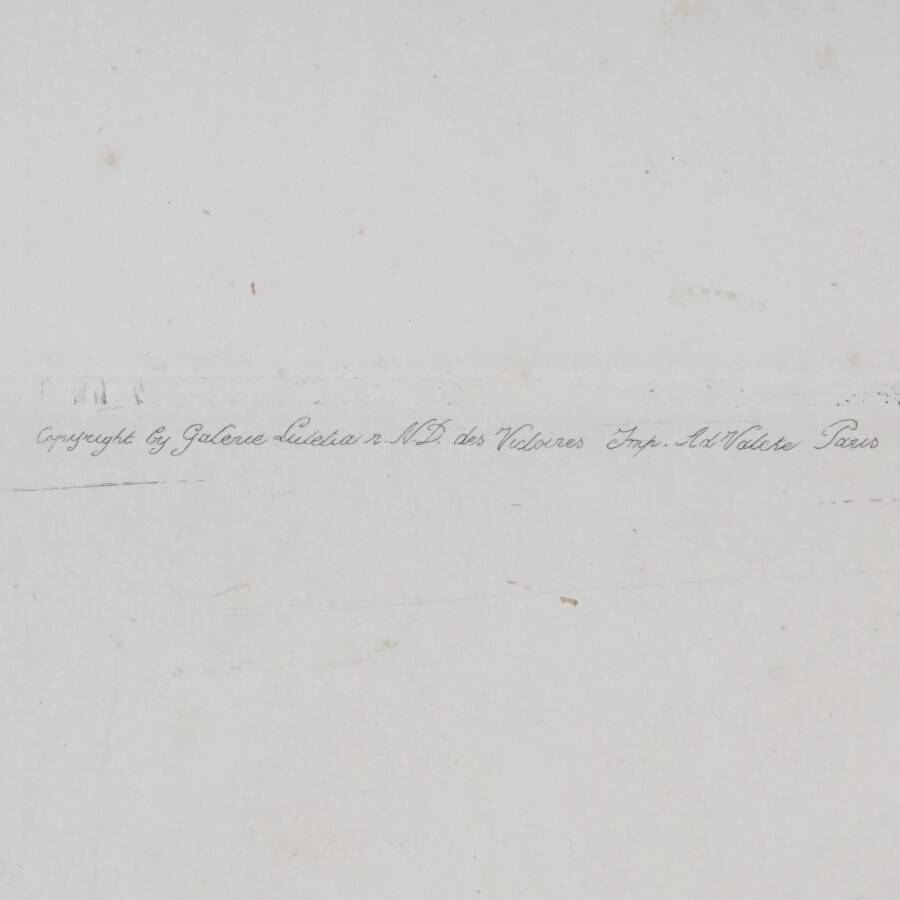 Copyright by Galerie Lutetia r. N.D. des Victoires Imp. Ad Valcke Paris